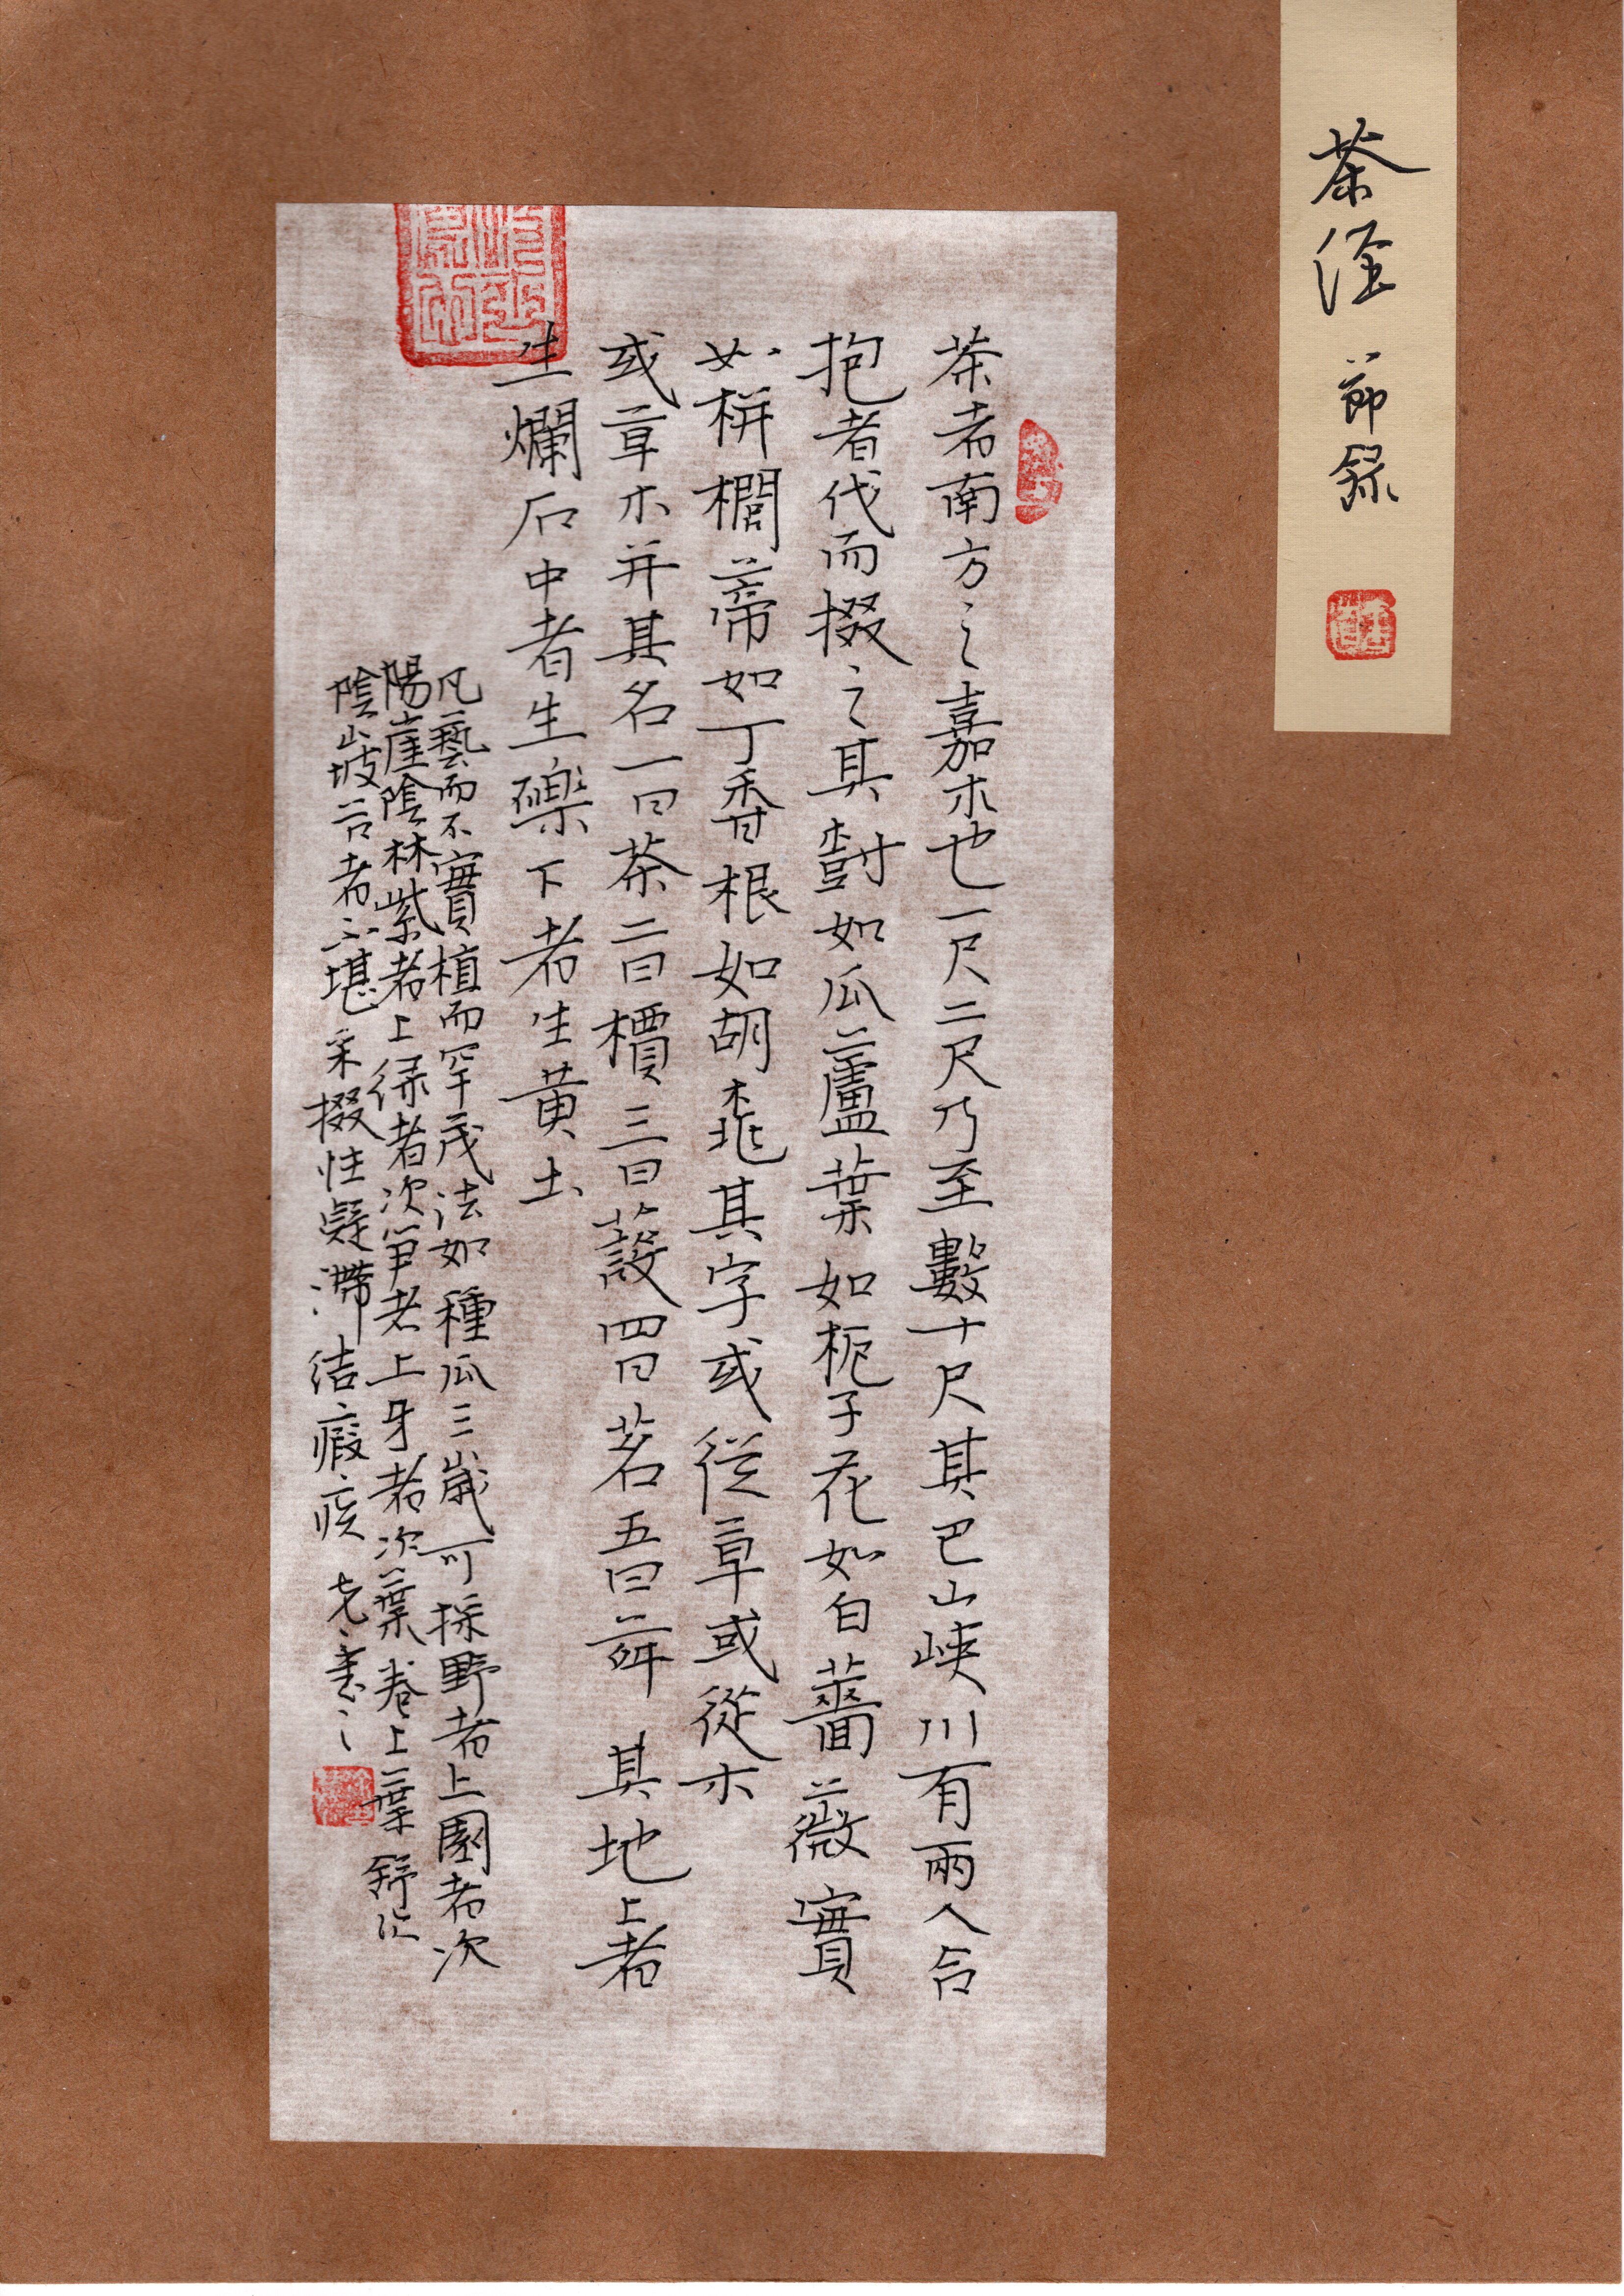 茶经
節録
茶者南方之嘉木也一尺二尺乃至數十尺其巴山峽川有兩人合
抱者伐而掇之其樹如瓜蘆葉如梔子花如白薔薇實
如栟櫚蒂如丁香根如胡桃其字或從草或從木
或草木并其名一曰茶二曰檟三曰蔎四曰茗五曰荈其地上者
生爛石中者生礫下者生黄土
凡藝而不實植而罕茂法如種瓜三歲可採野者上園者次
陽崖陰林紫者上绿者次笋者上牙者次葉卷上葉舒次
陰山坡谷者不堪采掇性凝滯結瘕疾